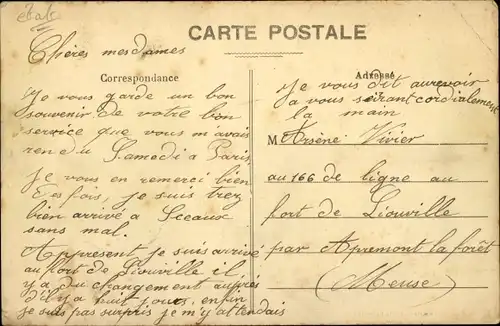 états
CARTE POSTALE
Chères mesdames
Correspondance
Je vous garde un bon
souvenir de votre bon
service que vous m'avais
rendu Samedi a Paris
je vous en remerci bien
Ecsfois, je suis trez
bien arrivé a Sceaux
sans mal.
Appresent je suis arrivé
au fort de Liouville il
y a du changement aupres
d'il y a huit jours, enfin
je suis pas surpris je m'y attendais
Adresse
je vous dit aurevoir
a vous serrant cordialement
la main
M Arsène Vivier
au 166 de ligne au
fort de Liouville
par Apremont la forêt
(Meuse)